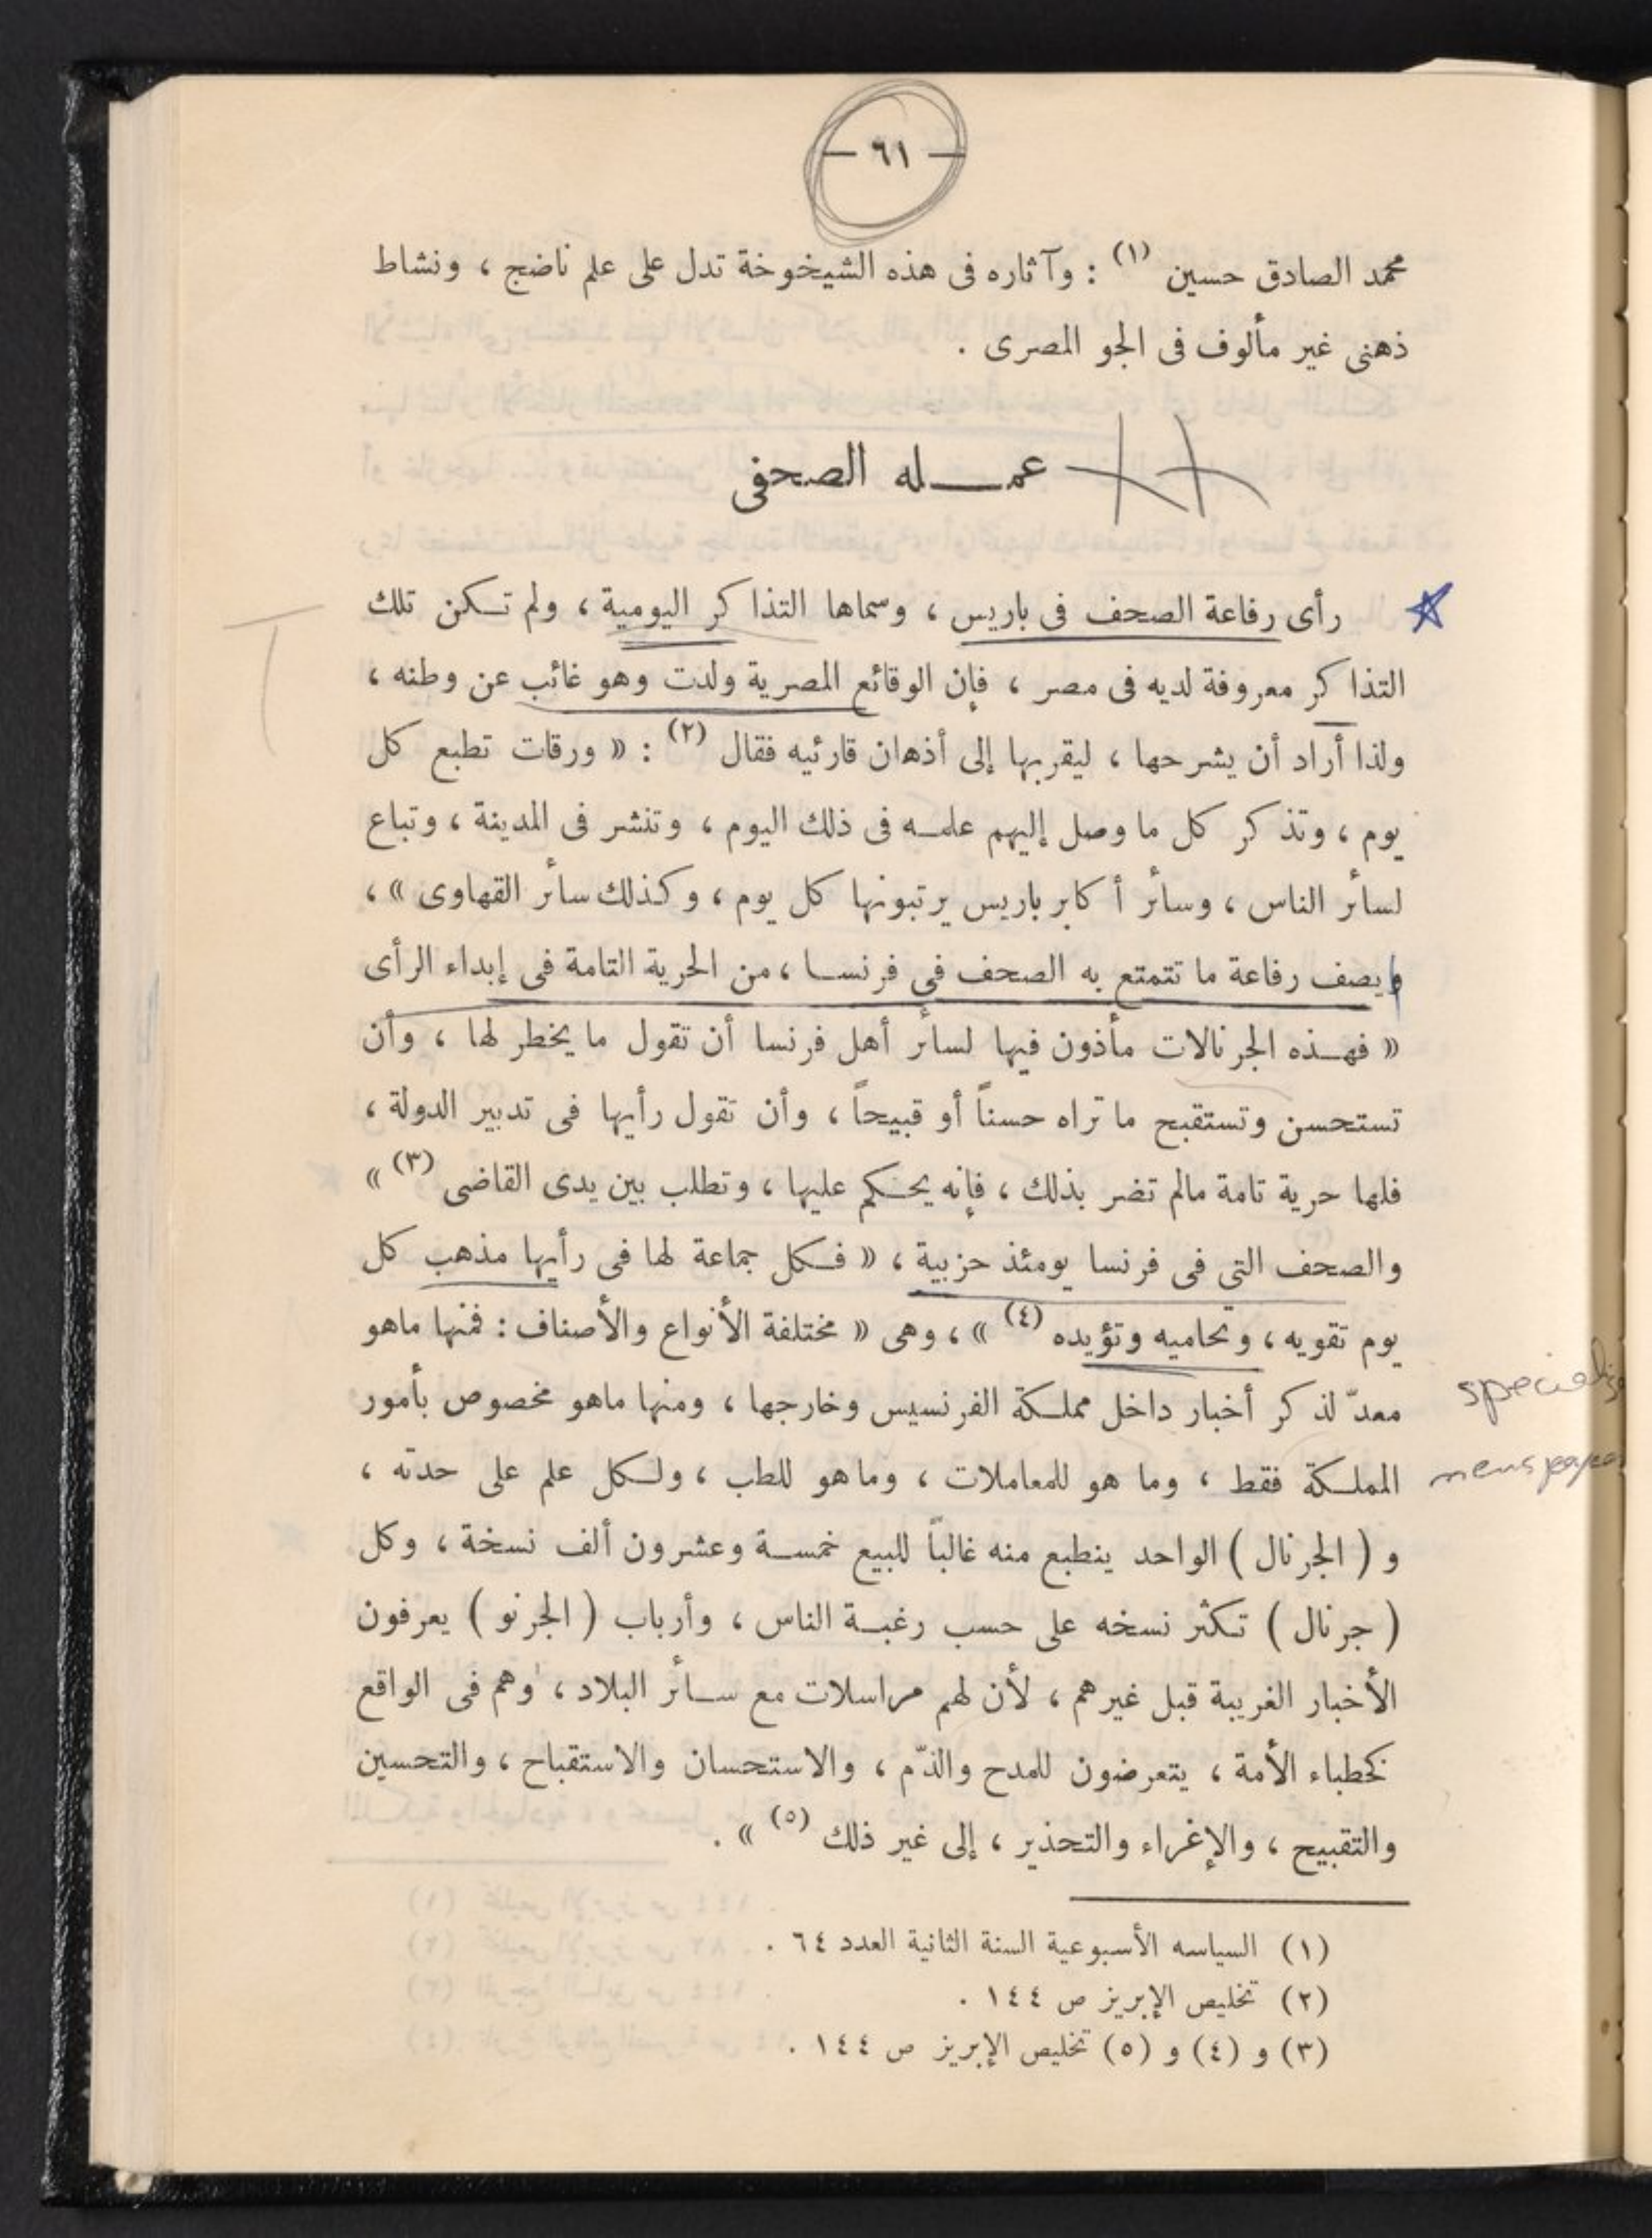 — ٦١ —
محمد الصادق حسين (١) : وآثاره فى هذه الشيخوخة تدل على علم ناضج ، ونشاط
ذهنى غير مألوف فى الجو المصرى .
عمـــله الصحفى
رأى رفاعة الصحف فى باريس ، وسماها التذاكر اليومية ، ولم تكن تلك
التذاكر معروفة لديه فى مصر ، فإن الوقائع المصرية ولدت وهو غائب عن وطنه ،
ولذا أراد أن يشرحها ، ليقربها إلى أذهان قارئيه فقال (٢) : « ورقات تطبع كل
يوم ، وتذكر كل ما وصل إليهم علمـه فى ذلك اليوم ، وتنشر فى المدينة ، وتباع
لسائر الناس ، وسائر أكابر باريس يرتبونها كل يوم ، وكذلك سائر القهاوى » ،
ويصف رفاعة ما تتمتع به الصحف فى فرنسا ، من الحرية التامة فى إبداء الرأى
« فهـذه الجرنالات مأذون فيها لسائر أهل فرنسا أن تقول ما يخطر لها ، وأن
تستحسن وتستقبح ما تراه حسناً أو قبيحاً ، وأن تقول رأيها فى تدبير الدولة ،
فلها حرية تامة مالم تضر بذلك ، فإنه يحكم عليها ، وتطلب بين يدى القاضى (٣) »
والصحف التى فى فرنسا يومئذ حزبية ، « فكل جماعة لها فى رأيها مذهب كل
يوم تقويه ، وتحاميه وتؤيده (٤) » ، وهى « مختلفة الأنواع والأصناف : فمنها ماهو
معدّ لذكر أخبار داخل مملكة الفرنسيس وخارجها ، ومنها ماهو مخصوص بأمور
المملكة فقط ، وما هو للمعاملات ، وماهو للطب ، ولكل علم على حدته ،
و ( الجرنال ) الواحد ينطبع منه غالباً للبيع خمسـة وعشرون ألف نسخة ، وكل
( جرنال ) تكثر نسخه على حسب رغبـة الناس ، وأرباب ( الجرنو ) يعرفون
الأخبار الغريبة قبل غيرهم ، لأن لهم مراسلات مع سـائر البلاد ، وهم فى الواقع
كخطباء الأمة ، يتعرضون للمدح والذّم ، والاستحسان والاستقباح ، والتحسين
والتقبيح ، والإغراء والتحذير ، إلى غير ذلك (٥) » .
(١) السياسه الأسبوعية السنة الثانية العدد ٦٤ .
(٢) تخليص الإبريز ص ١٤٤ .
(٣) و (٤) و (٥) تخليص الإبريز ص ١٤٤ .